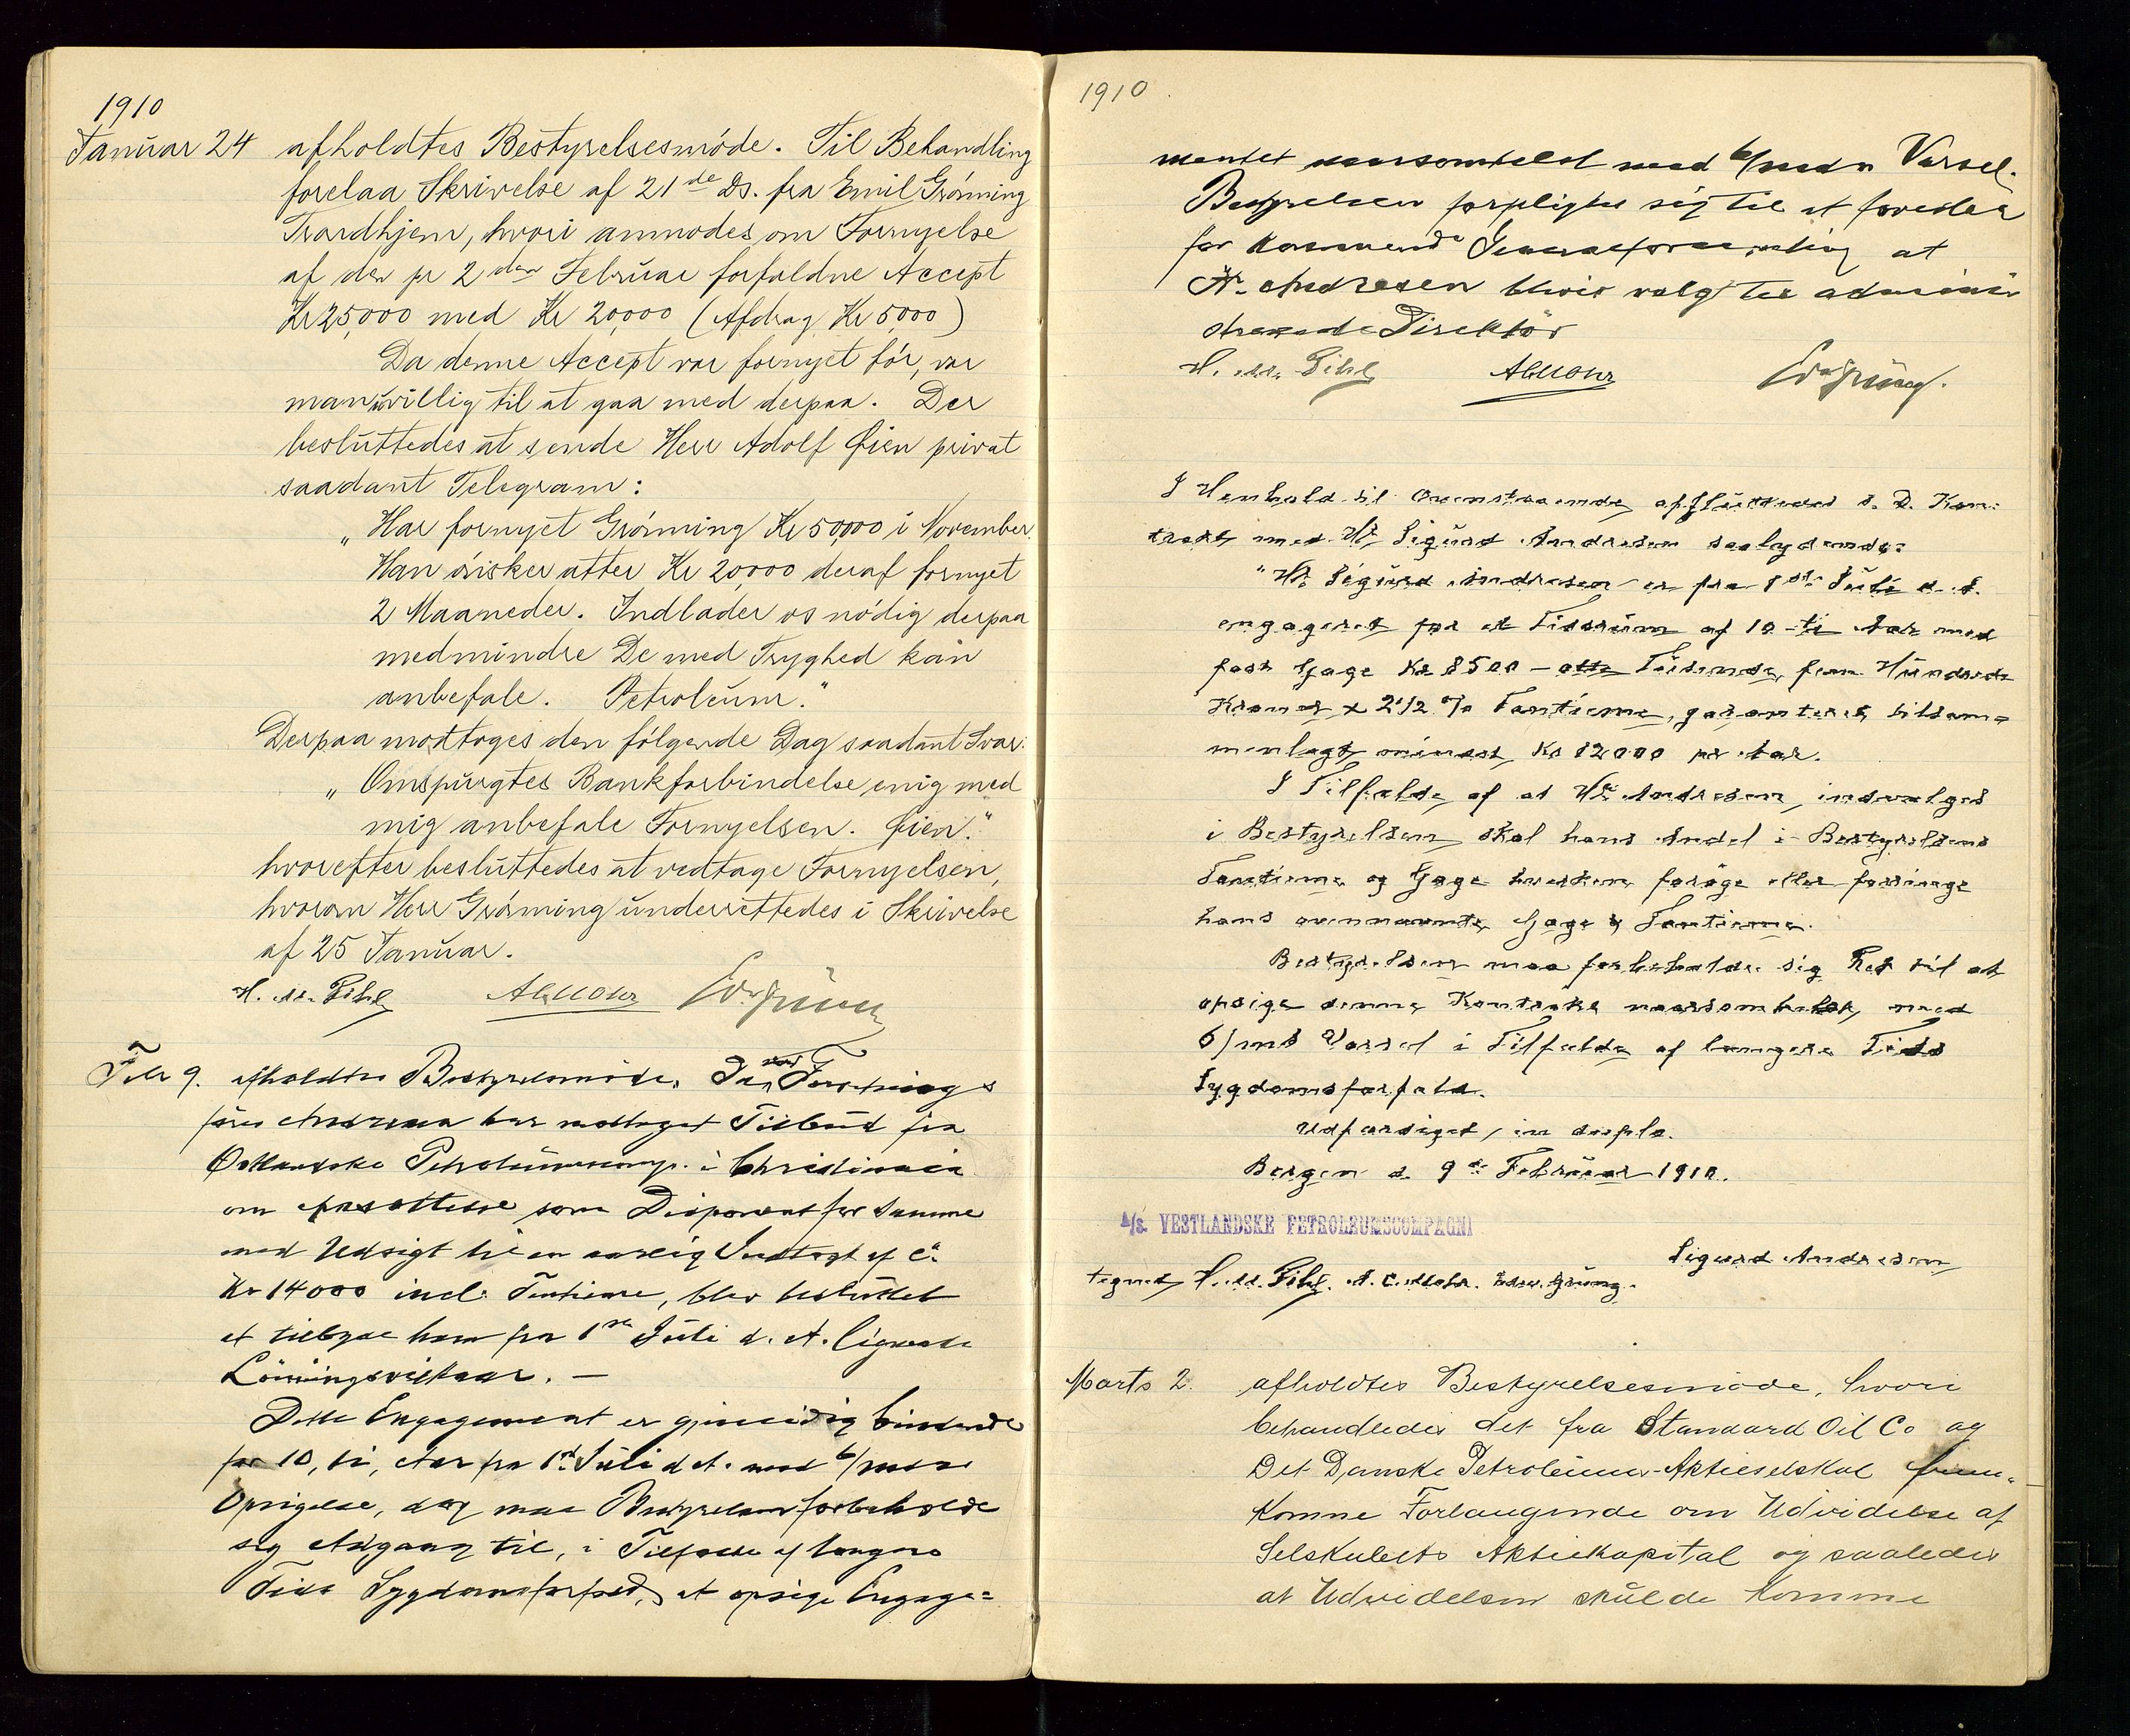 1910
Januar 24 afholdtes Bestyrelsesmöde. Til Behandling
forelaa Skrivelse af 21de ds. fra Emil Gröning
Trondhjem, hvori anmodes om Fornyelse
af den pr 2den Februar forfaldne Accept
Kr 25,000 med Kr 20,000 (Afdrag Kr 5,000)
Da denne Accept var fornyet för, var
man uvillig til at gaa med derpaa. Der
besluttedes at sende Herr Adolf Öien privat
saadant Telegram:
„Har fornyet Gröning Kr 50,000 i November.
Han önsker atter Kr 20,000 deraf fornyet
2 Maaneder. Indlader os nödig derpaa
medmindre De med Tryghed kan
anbefale. Petroleum."
Derpaa modtoges den fölgende Dag saadant Svar:
„Omspurgtes Bankforbindelse enig med
mig anbefale Fornyelsen. Öien."
hvorefter besluttedes at vedtage Fornyelsen,
hvorom Herr Gröning underrettedes i Skrivelse
af 25 Januar.
H. M. Gihl
Febr 9. afholdtes Bestyrelsesmöde. Da vor Forretnings
förer Andresen har modtaget Tilbud fra
Östlandske Petroleumscomp. i Christiania
om Ansættelse som Disponent for samme
med Udsigt til en aarlig Indtægt af ca.
Kr 14000 incl. Tantieme, blev besluttet
at tilbyde ham fra 1ste Juli d. A. lignende
Lönningsvilkaar. —
Dette Engagement er gjensidig bindende
for 10, ti, Aar fra 1ste Juli d. A. med 6/mdrs
Opsigelse, dog maa Bestyrelsen forbeholde
sig Adgang til, i Tilfælde af længere
Tids Sygdomsforfald, at opsige Engage=
1910.
mentet naarsomhelst med 6/mdrs Varsel.
Bestyrelsen forpligter sig til at foreslaa
for kommende Generalforsamling at
Hr. Andresen bliver valgt til admini-
strerende Direktör
H. M. Gihl
I Henhold til ovenstaaende afsluttedes s. D. Kon:
trakt med Hr Sigurd Andresen saalydende:
"Hr. Sigurd Andresen er fra 1ste Juli d. A.
engageret for et Tidsrum af 10 - ti Aar med
fast Gage Kr 8500 — otte Tusende fem Hundrede
Kroner & 2 1/2 % Tantieme, garanteret tilsam=
menlagt mindst Kr 12000 pr Aar.
I Tilfælde af at Hr. Andresen indvælges
i Bestyrelsen skal hans Andel i Bestyrelsens
Tantieme og Gage hverken foröge eller forringe
hans ovennævnte Gage & Tantieme.
Bestyrelsen maa forbeholde sig Ret til at
opsige denne Kontrakt naarsomhelst, med
6/mds Varsel i Tilfælde af længere Tids
Sygdomsforfald.
Udfærdiget in duplo.
Bergen d. 9de Februar 1910.
A/S. VESTLANDSKE PETROLEUMSCOMPAGNI
Sigurd Andresen
tegnet H. M. Gihl. A. C. Mohr. Edw. Grüng.
Marts 2. afholdtes Bestyrelsesmöde, hvori
behandledes det fra Standard Oil Co og
Det Danske Petroleums-Aktieselskab frem-
komne Forlangende om Udvidelse af
Selskabets Aktiekapital og saaledes
at Udvidelsen skulde komme